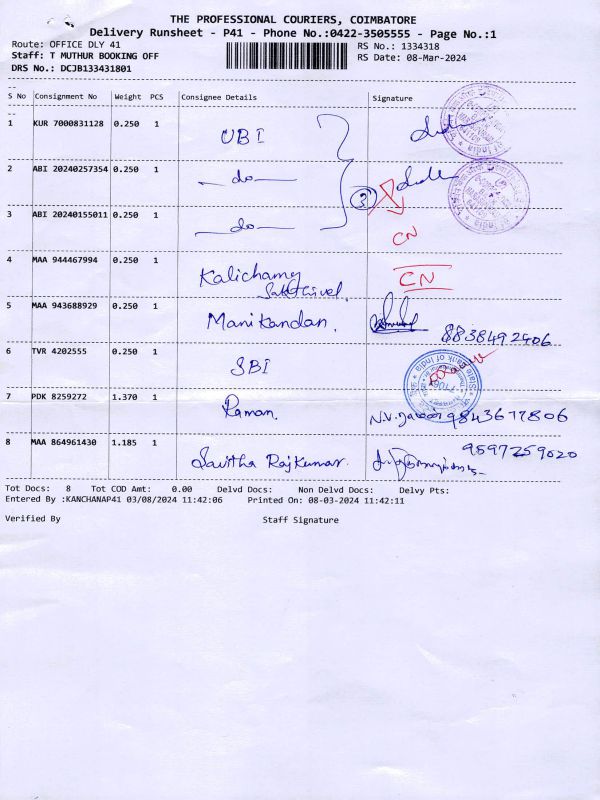 THE PROFESSIONAL COURIERS, COIMBATORE
Delivery Runsheet - P41 - Phone No.:0422-3505555 - Page No.:1
Route: OFFICE DLY 41 RS No.: 1334318
Staff: T MUTHUR BOOKING OFF RS Date: 08-Mar-2024
DRS No.: DCJB133431801
S No Consignment No Weight PCS Consignee Details Signature
1 KUR 7000831128 0.250 1 UBI
2 ABI 20240257354 0.250 1 —do—
3
3 ABI 20240155011 0.250 1 —do— CN
4 MAA 944467994 0.250 1 Kalichamy CN
Sakthivel.
5 MAA 943688929 0.250 1 Manikandan. 8838492406
6 TVR 4202555 0.250 1 SBI
State Bank of India
7 PDK 8259272 1.370 1 Raman. N.V. 9843617806
8 MAA 864961430 1.185 1 Savitha Rajkumar. 9597259020
Tot Docs: 8 Tot COD Amt: 0.00 Delvd Docs: Non Delvd Docs: Delvy Pts:
Entered By :KANCHANAP41 03/08/2024 11:42:06 Printed On: 08-03-2024 11:42:11
Verified By Staff Signature